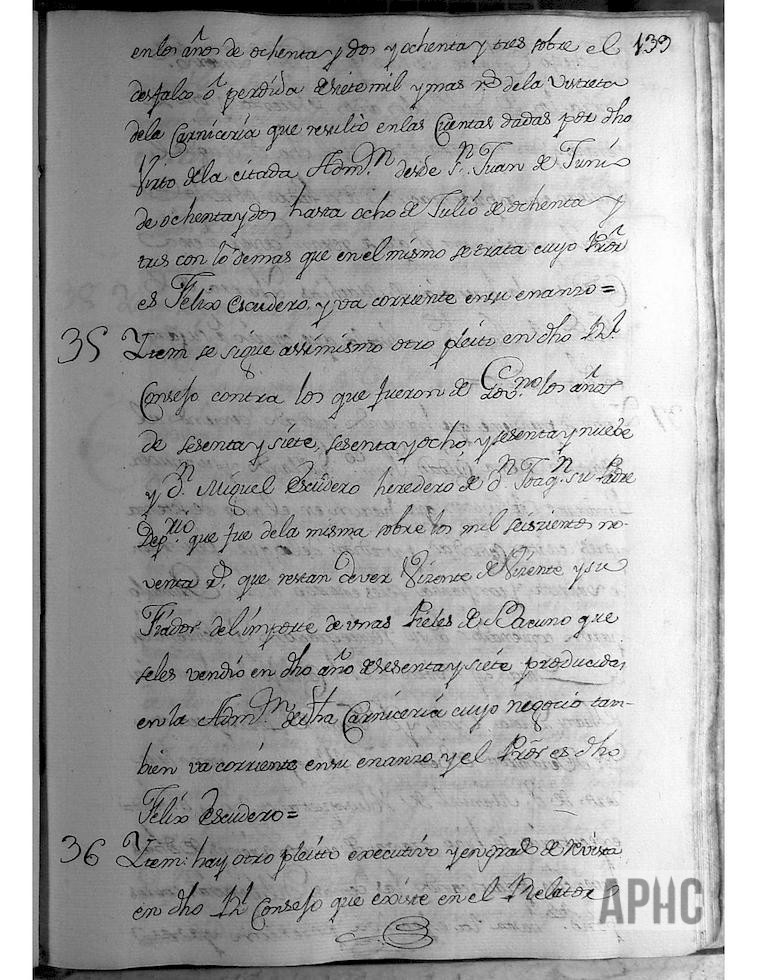 en los años de ochenta y dos y ochenta y tres sobre el 133
desfalco ò perdida de siete mil y mas rs. de la Vistreta
de la Carniceria que resultò en las Cuentas dadas por dho
de la citada Admon. desde Sn. Juan de Junio
de ochenta y dos hasta ocho de Julio de ochenta y
tres con lo demas que en el mismo se trata cuyo Prõr
es Felix Escudero, y va corriente en su enanzo =
35 Ytem se sigue assimismo otro pleito en dho Rl.
Consejo contra los que fueron de Govno. los años
de sesenta y siete, sesenta y ocho, y sesenta y nuebe
y dn. Miguel Escudero heredero de dn. Joaqn. su Padre
Deprio. que fue de la misma sobre los mil seiszientos no-
venta rs. que restan dever Vizente de Vizente y su
Fiador del importe de unas Pieles de Bacuno que
seles vendio en dho año de sesenta y siete producidas
en la Admon. de dha Carniceria cuyo negocio tam-
bien va corriente en su enanzo, y el Prõr es dho
Felix Escudero =
36 Ytem: hay otro pleitto executivo y en grado de revista
en dho Rl. Consejo que existe en el Relator
APHC